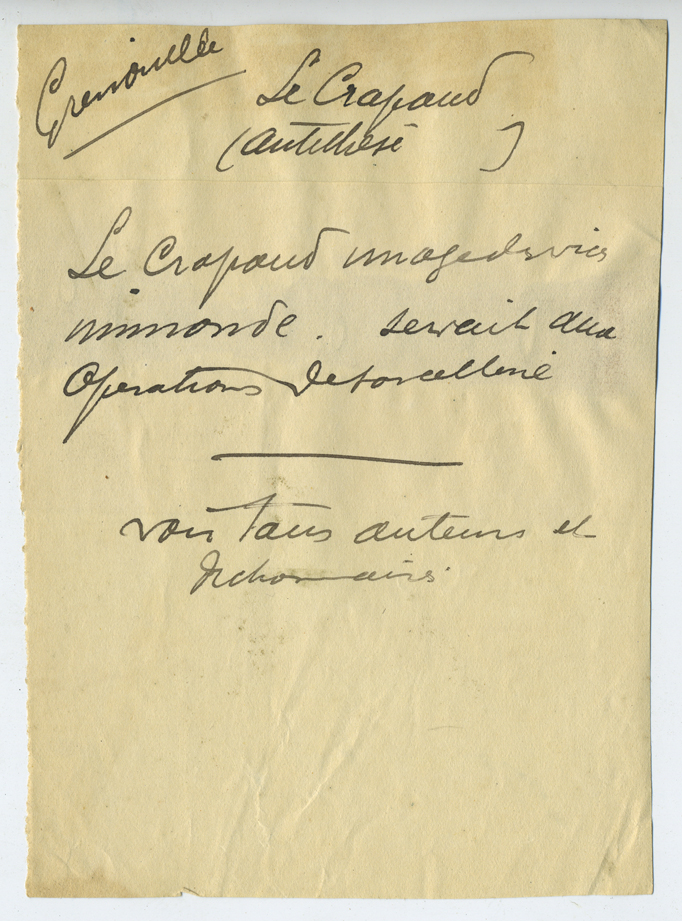 Grenouille
Le Crapaud
(antithèse )
Le Crapaud image de vice
immonde. servait aux
Opérations de sorcellerie
voir tous auteurs et
dictionnaires